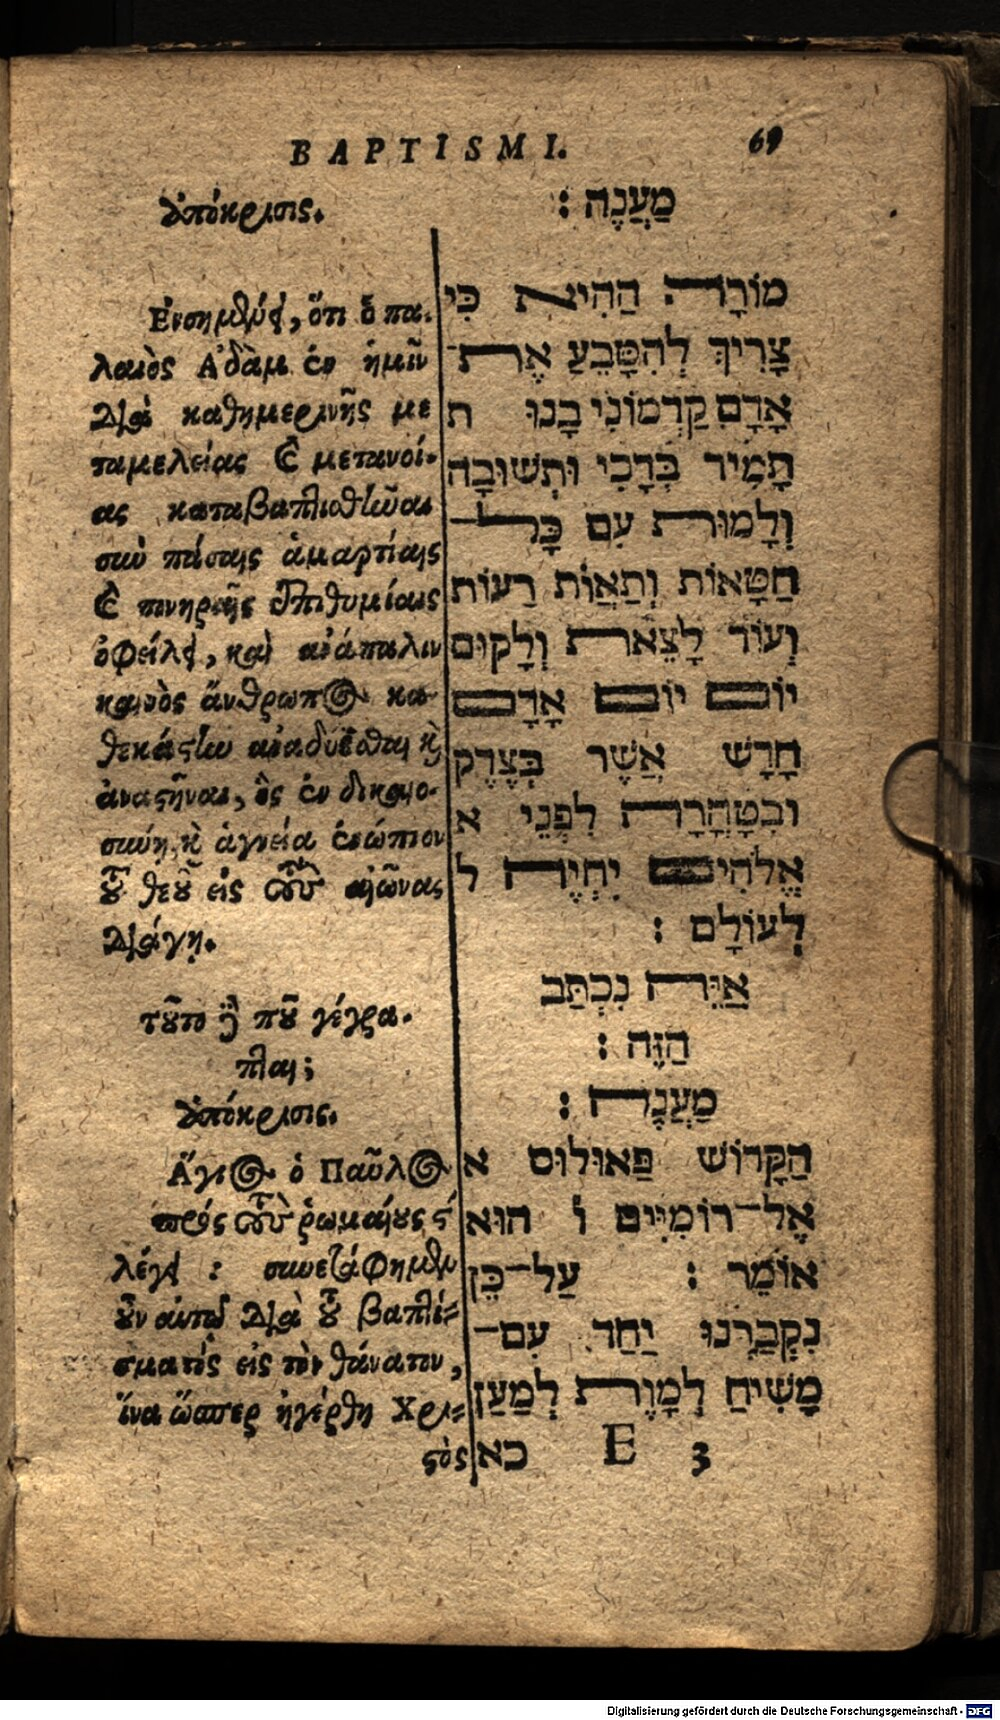 BAPTISMI. 69
ἀπόκρισις.
Ἐνσημαίνει, ὅτι ὁ πα-
λαιὸς Ἀδὰμ ἐν ἡμῖν
διὰ καθημερινῆς με
ταμελείας καὶ μετανοί-
ας καταβαπτισθῆναι
σὺν πάσαις ἁμαρτίαις
καὶ πονηραῖς ἐπιθυμίαις
ὀφείλει, καὶ ἀνάπαλιν
καινὸς ἄνθρωπος κα-
θεκάστην ἀναδύεσθαι καὶ
ἀναστῆναι, ὃς ἐν δικαιο-
σύνῃ καὶ ἁγνείᾳ ἐνώπιον
τοῦ θεοῦ εἰς τοὺς αἰῶνας
διάγῃ.
τοῦτο δὲ ποῦ γέγρα-
πται;
ἀπόκρισις.
Ἅγιος ὁ Παῦλος
πρὸς τοὺς ῥωμαίους ϛ
λέγει : συνετάφημεν
οὖν αὐτῷ διὰ τοῦ βαπτί-
σματος εἰς τὸν θάνατον,
ἵνα ὥσπερ ἠγέρθη Χρι-
στὸς
מַעֲנֶה :
מוֹרָה הַהִיא כִּי
צָרִיךְ לְהִטָּבֵעַ אֶת־
אָדָם קַדְמוֹנִי בָנוּ ת
תָמִיד בְּדָכִי וּתְשׁוּבָה
וְלָמוּת עִם כָּל־
חַטָּאוֹת וְתַאֲוֹת רַעוֹת
וְעוֹד לָצֵאת וְלָקוּם
יוֹם יוֹם אָדָם
חָדָשׁ אֲשֶׁר בְּצֶדֶק
וּבְטָהֳרָה לִפְנֵי א
אֱלֹהִים יִחְיֶה ל
לְעוֹלָם :
אַיֵּה נִכְתַּב
הַזֶּה :
מַעֲנֶה :
הַקָּדוֹשׁ פַּאוּלוּס א
אֶל־רוֹמִיִּים ו הוּא
אוֹמֵר : עַל־כֵּן
נִקְבַּרְנוּ יַחַד עִם־
מָשִׁיחַ לְמָוֶת לְמַעַן
כא E 3
Digitalisierung gefördert durch die Deutsche Forschungsgemeinschaft - DFG